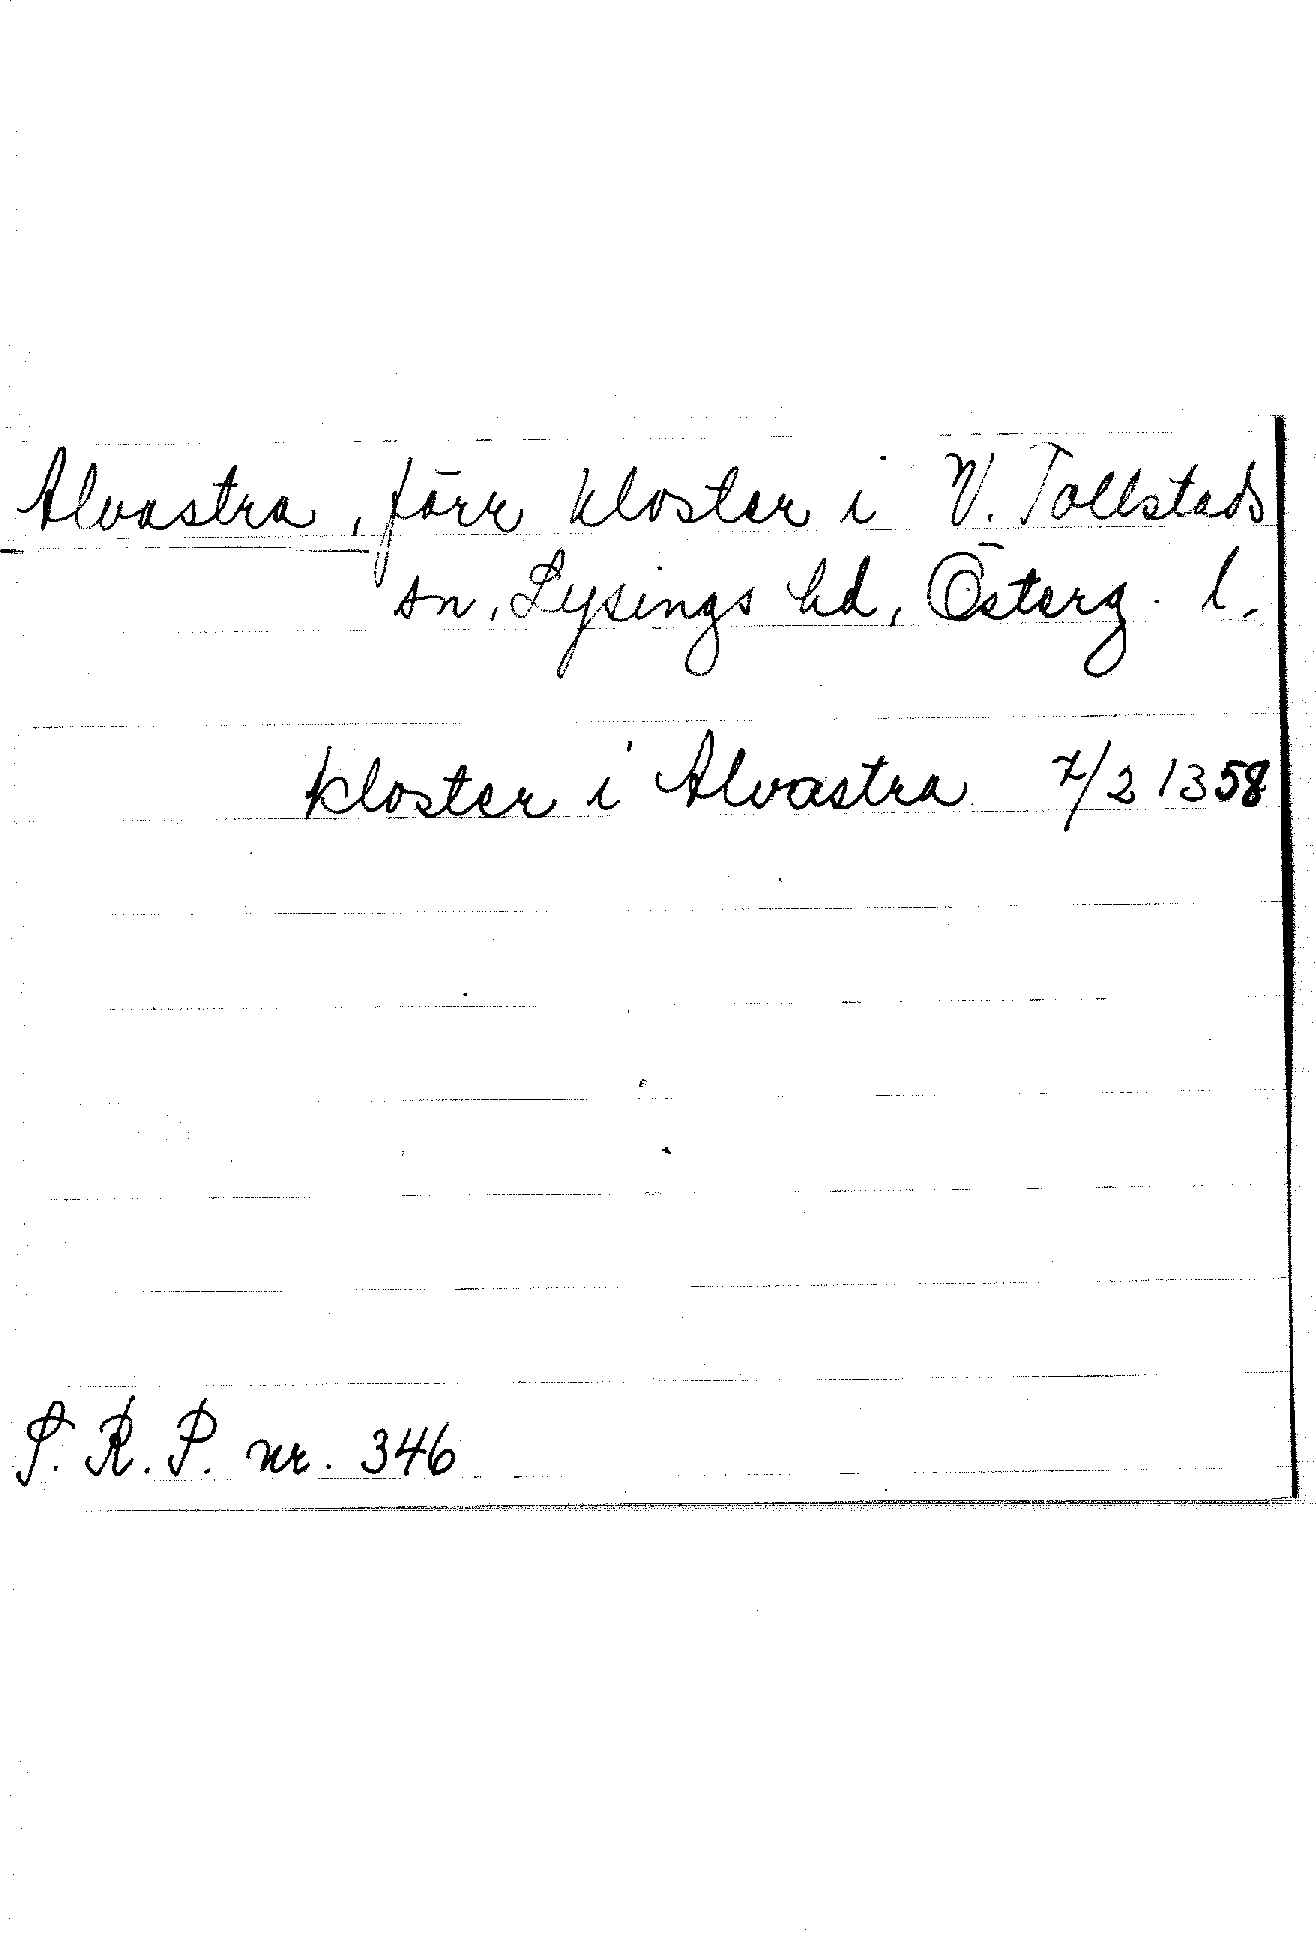 Alvastra, förr kloster i V. Tollstads
sn, Lysings hd, Österg. l.
kloster i Alvastra 7/2 1358
S. R. P. nr. 346